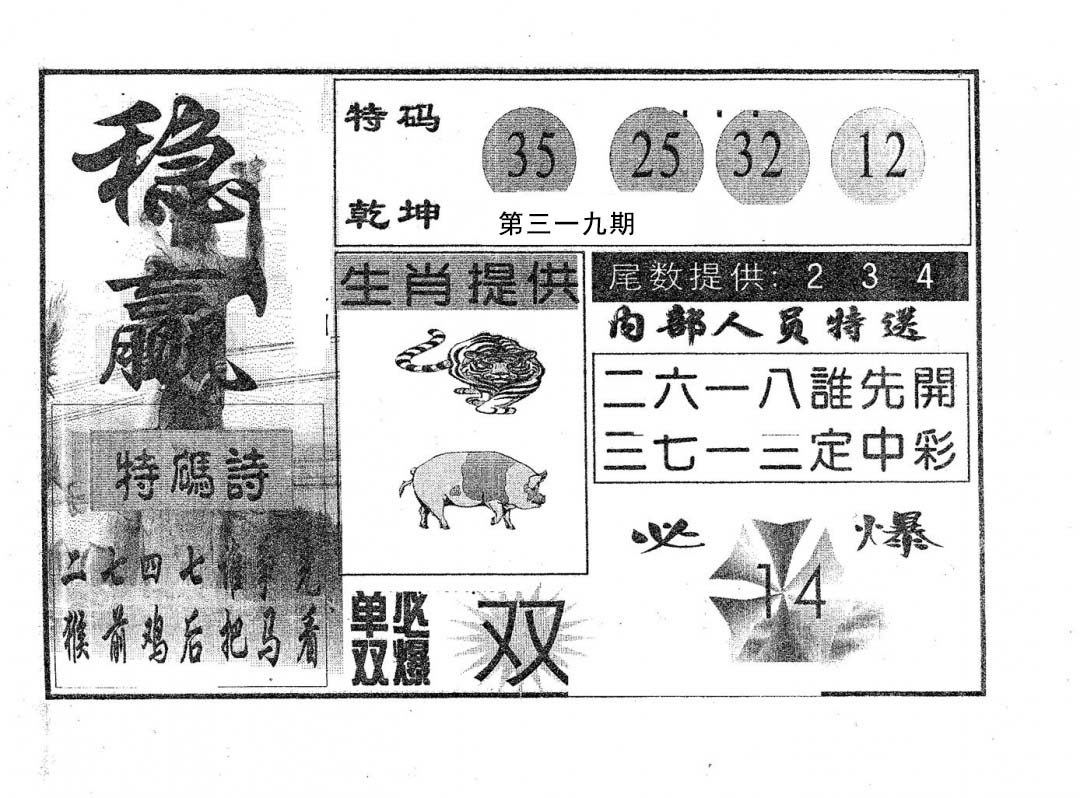 稳赢
特碼詩
二七四七誰爭先
猴前鸡后把马看
特码
35 25 32 12
乾坤
第三一九期
生肖提供
尾数提供: 2 3 4
内部人员特送
二六一八誰先開
三七一三定中彩
必爆
14
单双必爆
双